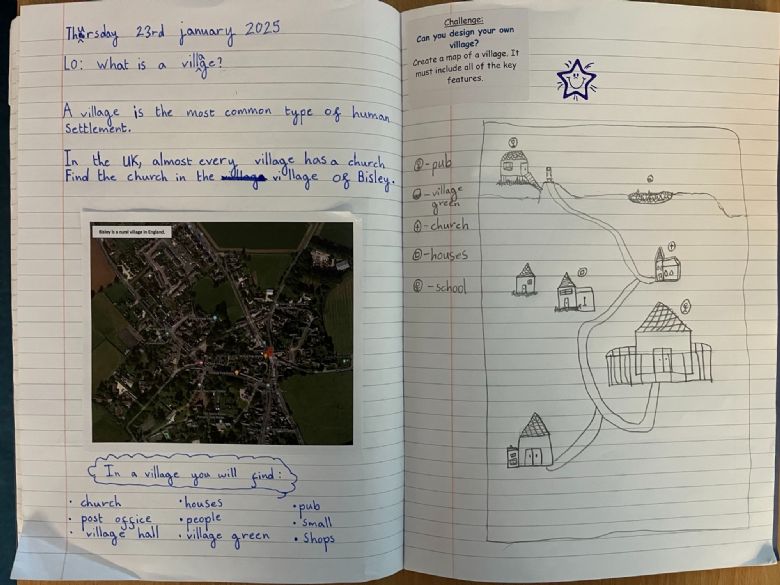 Thursday 23rd january 2025
LO: What is a village?
A village is the most common type of human
Settlement.
In the UK, almost every village has a church
Find the church in the village village of Bisley.
Bisley is a rural village in England.
In a village you will find:
• church
• post office
• village hall
• houses
• people
• village green
• pub
• small
• Shops
Challenge:
Can you design your own
village?
Create a map of a village. It
must include all of the key
features.
-pub
-village
green
-church
-houses
-school